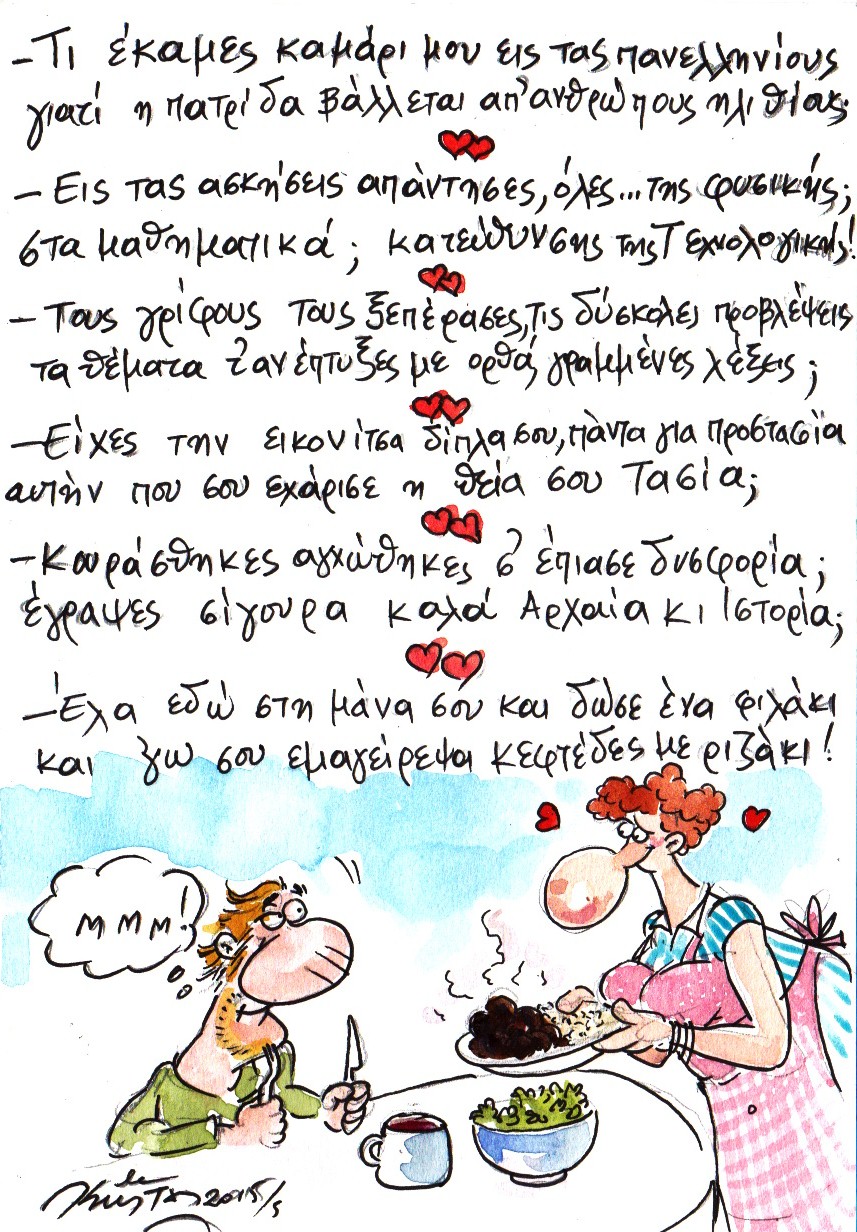 –Τι έκαμες καμάρι μου εις τας πανελληνίους
γιατί η πατρίδα βάλλεται απ' ανθρώπους ηλιθίους;
–Εις τας ασκήσεις απάντησες, όλες... της φυσικής;
στα μαθηματικά; κατεύθυνσης της Τεχνολογικής!
–Τους γρίφους τους ξεπέρασες, τις δύσκολες προβλέψεις
τα θέματα τ' ανέπτυξες με ορθά γραμμένες λέξεις;
–Είχες την εικονίτσα δίπλα σου, πάντα για προστασία
αυτήν που σου εχάρισε η θεία σου Τασία;
–Κουράσθηκες αγχώθηκες σ' έπιασε δυσφορία;
έγραψες σίγουρα καλά Αρχαία κι Ιστορία;
–Έλα εδώ στη μάνα σου και δώσε ένα φιλάκι
και 'γω σου εμαγείρεψα κεφτέδες με ριζάκι!
ΜΜΜ!
2015/5